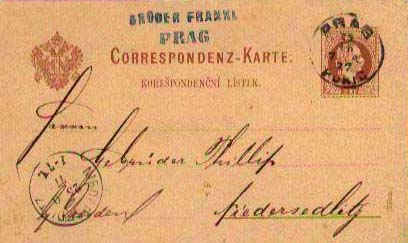 BRÜDER FRANKL
PRAG
CORRESPONDENZ-KARTE.
KOREŠPONDENČNÍ LÍSTEK.
PRAG
Herren
Gebrüder Phillip
Niedersedlitz